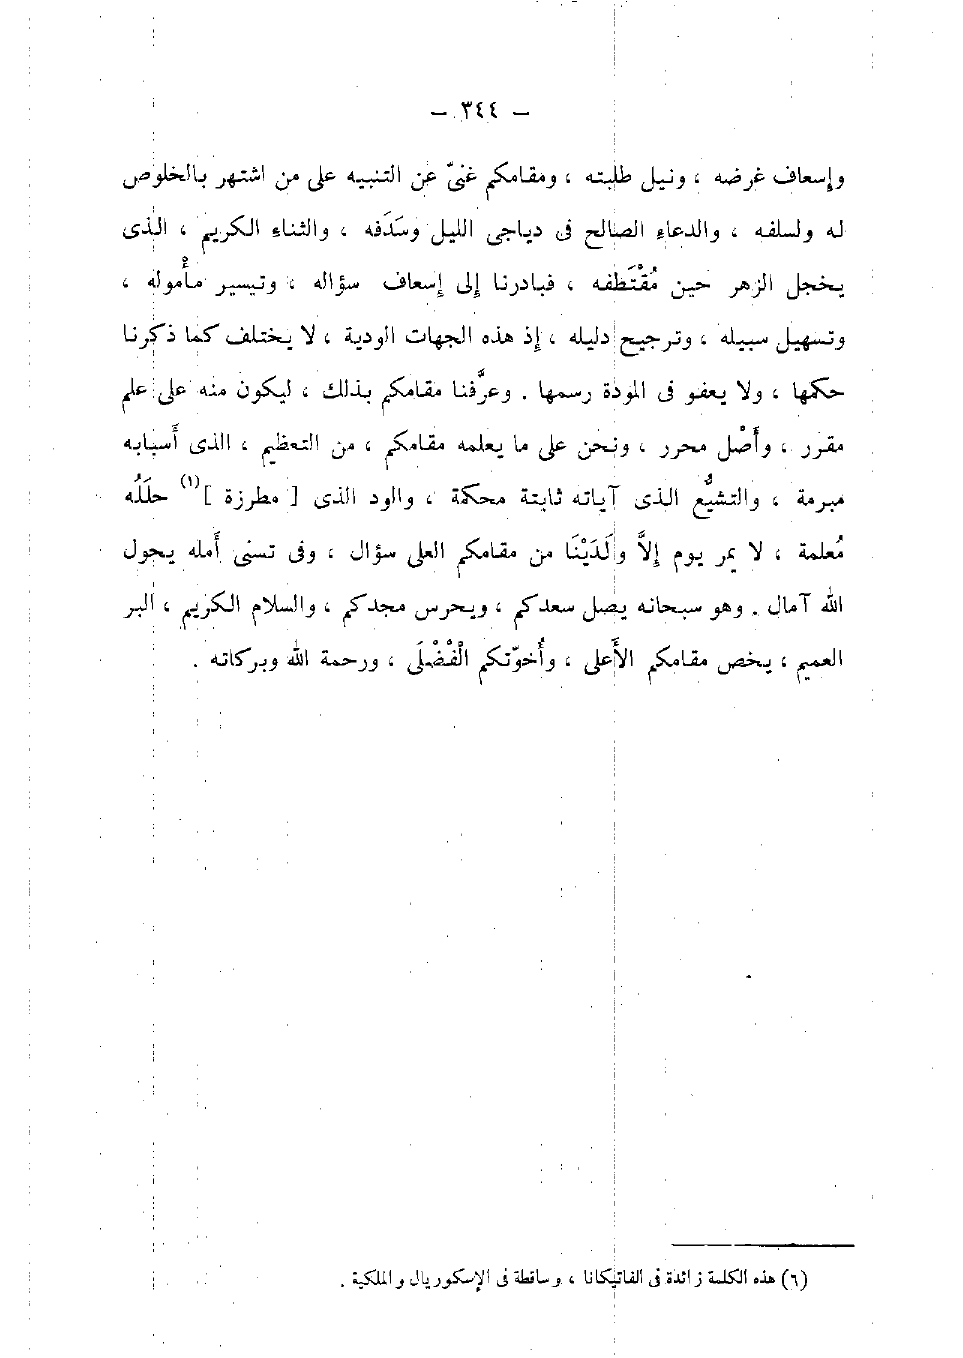 — ٣٤٤ —
وإسعاف غرضه ، ونيل طلبته ، ومقامكم غنىّ عن التنبيه على من اشتهر بالخلوص
له ولسلفه ، والدعاء الصالح فى دياجى الليل وسَدَفه ، والثناء الكريم ، الذى
يخجل الزهر حين مُقْتَطفه ، فبادرنا إلى إسعاف سؤاله ، وتيسير مأموله ،
وتسهيل سبيله ، وترجيح دليله ، إذ هذه الجهات الودية ، لا يختلف كما ذكرنا
حكمها ، ولا يعفو فى المودة رسمها . وعرَّفنا مقامكم بذلك ، ليكون منه على علم
مقرر ، وأَصْل محرر ، ونحن على ما يعلمه مقامكم ، من التعظيم ، الذى أَسبابه
مبرمة ، والتشيُّع الذى آياته ثابتة محكمة ، والود الذى [ مطرزة ](١) حلَلُه
مُعلمة ، لا يمر يوم إلاَّ ولَدَيْنَا من مقامكم العلى سؤال ، وفى تسنى أَمله يحول
الله آمال . وهو سبحانه يصل سعدكم ، ويحرس مجدكم ، والسلام الكريم ، البر
العميم ، يخص مقامكم الأَعلى ، وأُخوّتكم الْفُضْلَى ، ورحمة الله وبركاته .
(٦) هذه الكلمة زائدة فى الفاتيكانا ، وساقطة فى الإسكوريال والملكية .